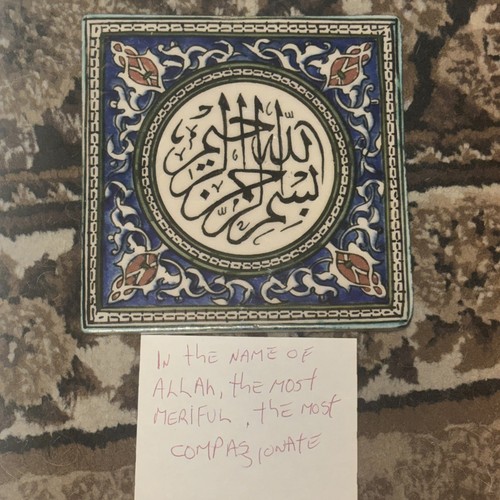 بسم الله الرحمن الرحيم
IN the NAME OF
ALLAh, the MOST
MERIFUL, the MOST
COMPASSIONATE